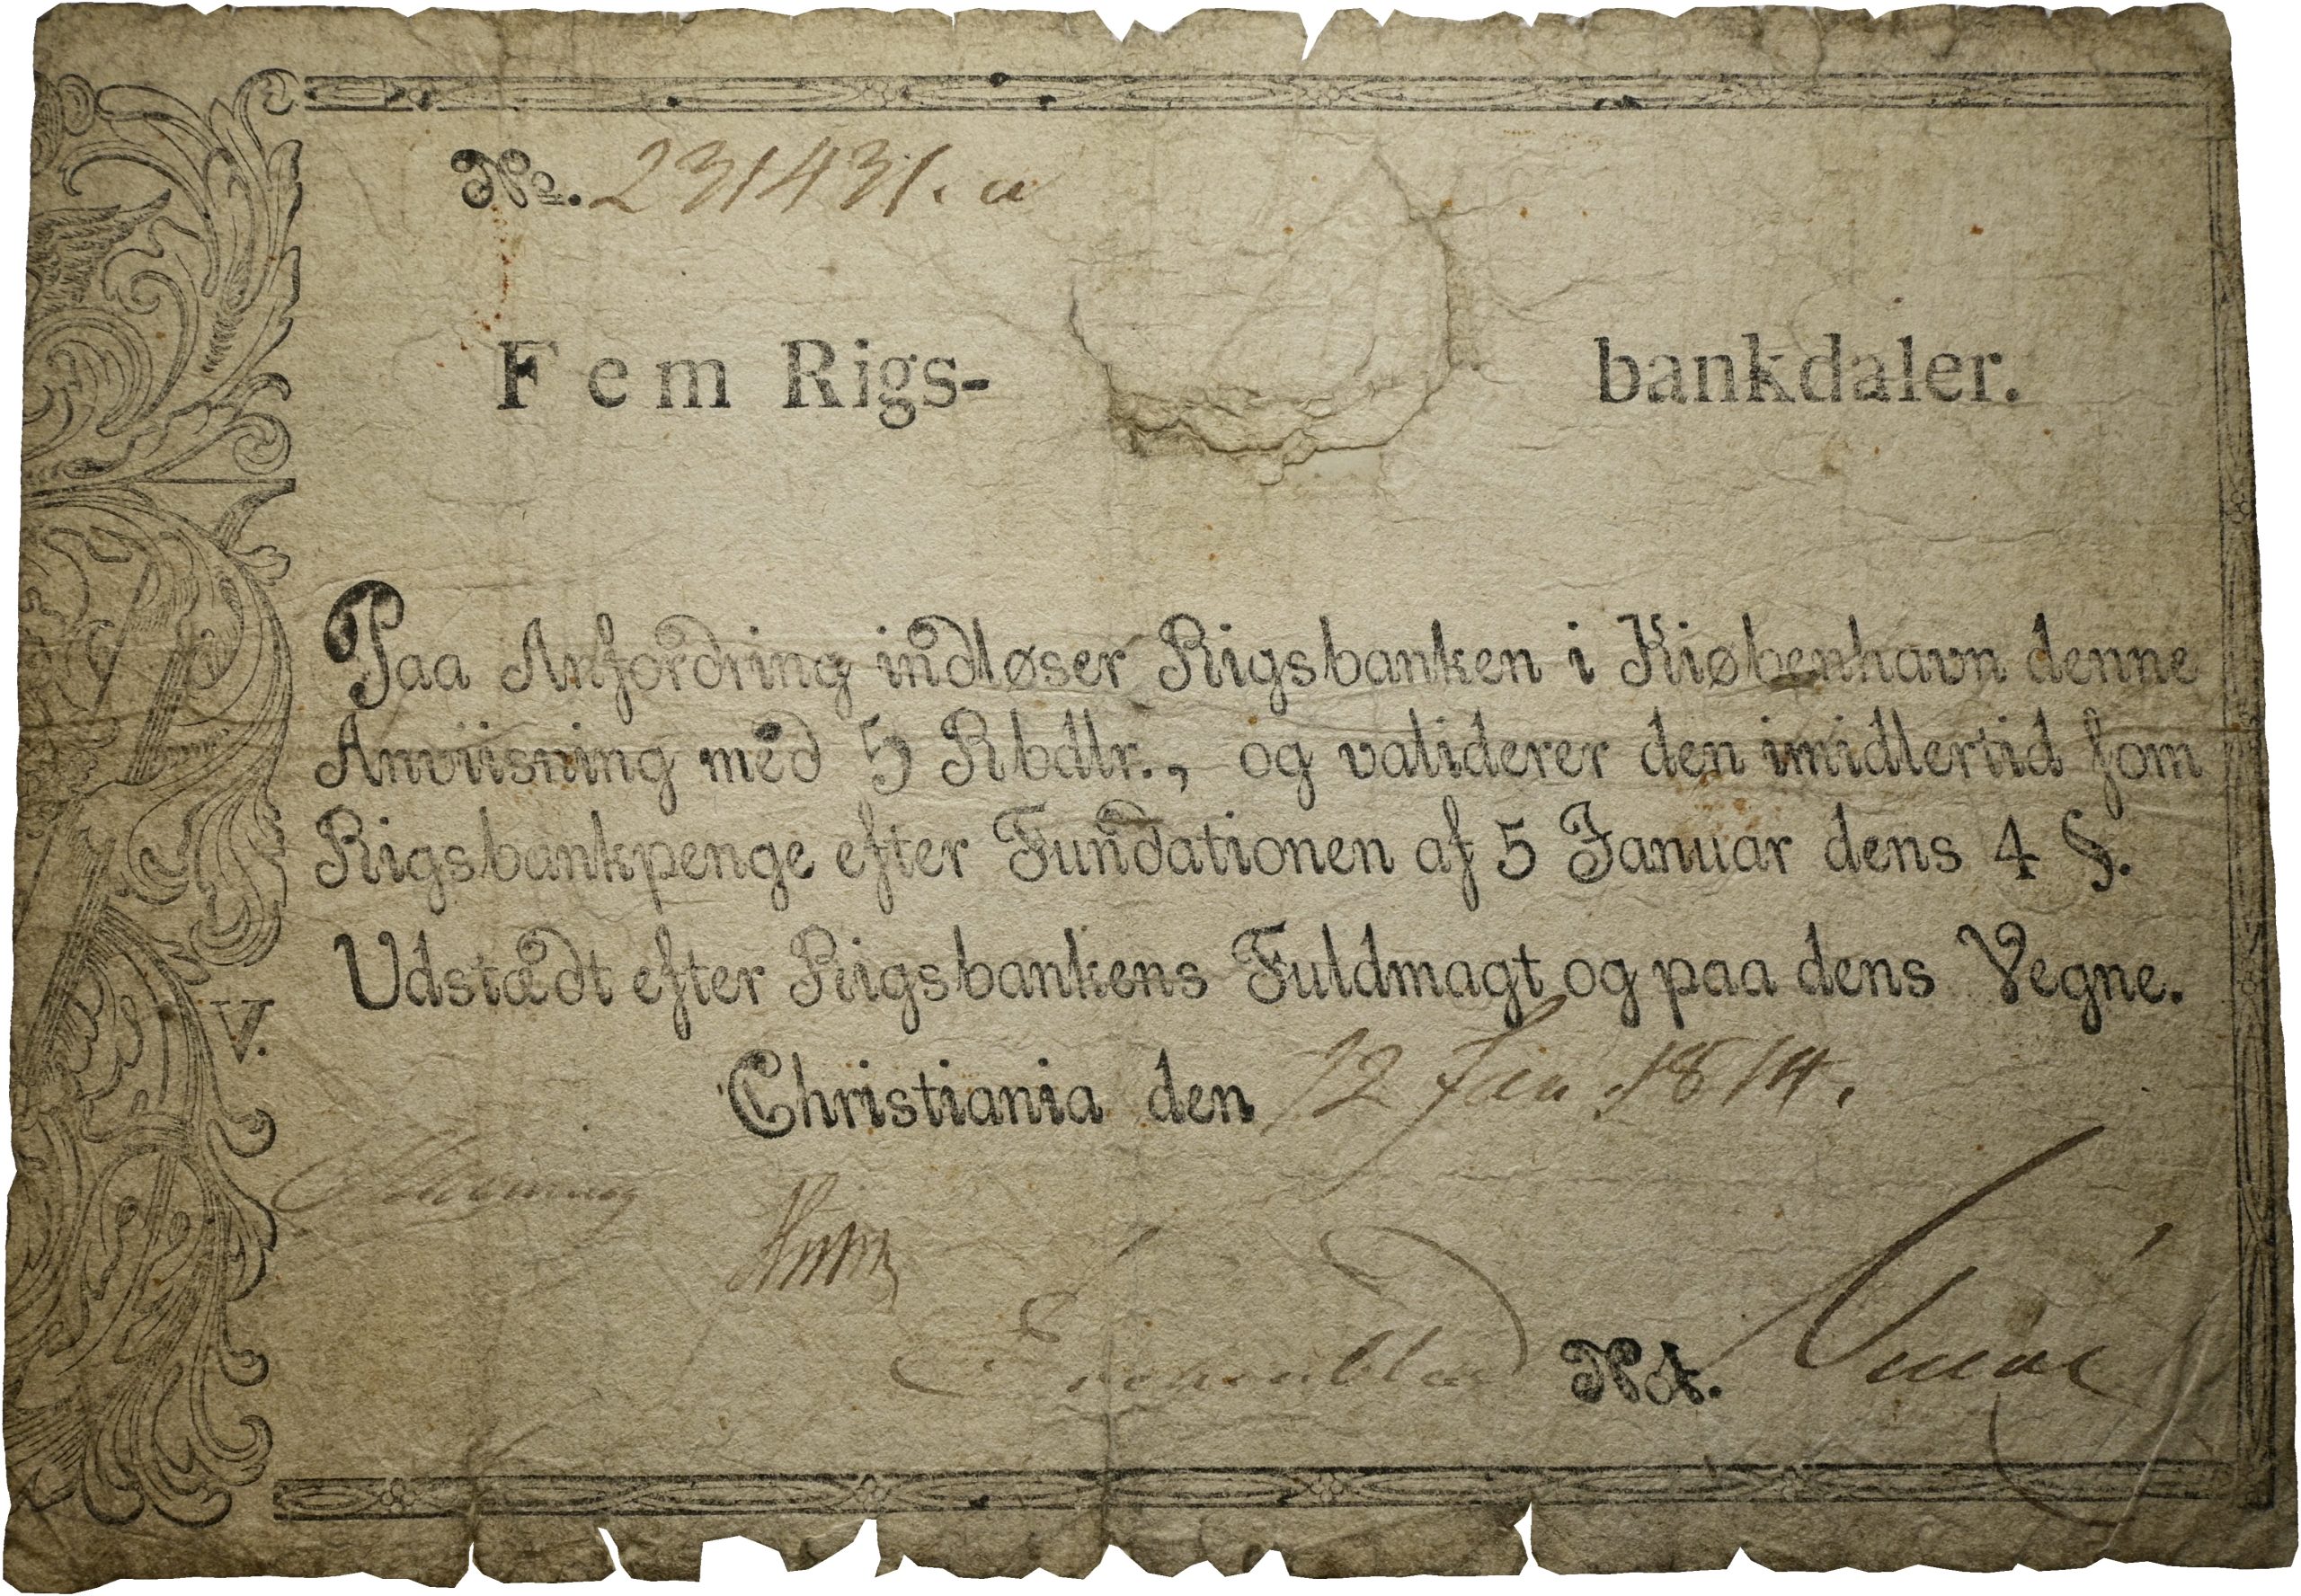 No. 231431. a
Fem Rigs- bankdaler.
Paa Anfordring indløser Rigsbanken i Kiøbenhavn denne
Anviisning med 5 Rbdlr., og validerer den imidlertid som
Rigsbankpenge efter Fundationen af 5 Januar dens 4 §.
Udstædt efter Rigsbankens Fuldmagt og paa dens Vegne.
V.
Christiania den 12 Jan 1814.